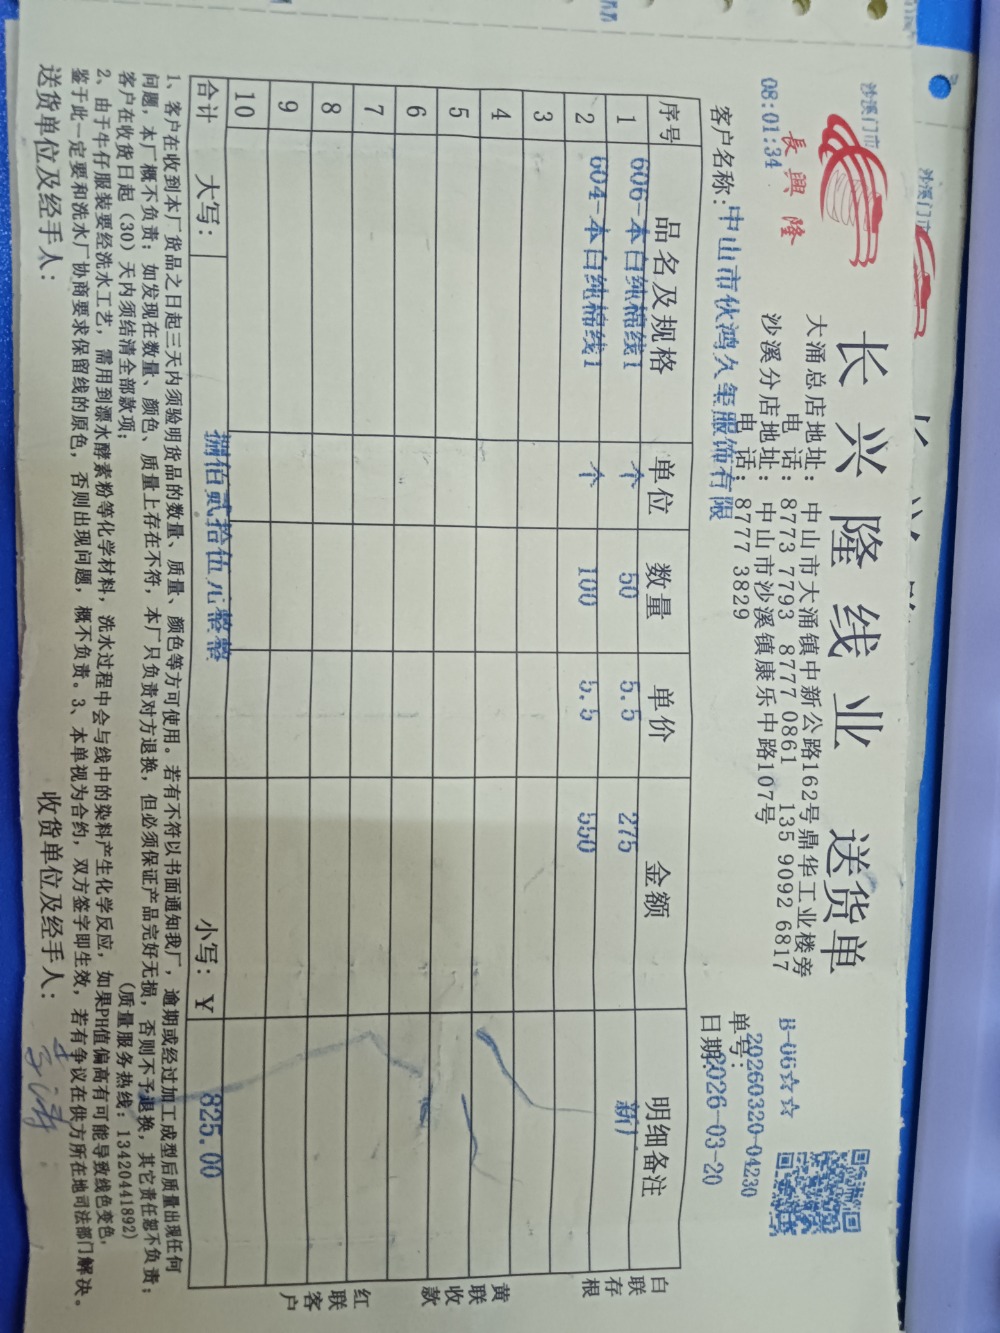 沙溪门市
08:01:34
長興隆
长兴隆线业 送货单
大涌总店地址：中山市大涌镇中新公路162号鼎华工业楼旁
电 话：8773 7793 8777 0861 135 9092 6817
沙溪分店地址：中山市沙溪镇康乐中路107号
电 话：8777 3829
B-06☆☆
单号：20260320-04230
日期：2026-03-20
客户名称：中山市伙鸿久玺服饰有限
序号 品名及规格 单位 数量 单价 金额 明细备注
1 606-本白纯棉线1 个 50 5.5 275 新厂
2 604-本白纯棉线1 个 100 5.5 550
3
4
5
6
7
8
9
10
合计 大写： 捌佰贰拾伍元整整 小写：￥ 825.00
白联存根
黄联收款
红联客户
1、客户在收到本厂货品之日起三天内须验明货品的数量、质量、颜色等方可使用。若有不符以书面通知我厂，逾期或经过加工成型后质量出现任何
问题，本厂概不负责；如发现在数量、颜色、质量上存在不符，本厂只负责对方退换，但必须保证产品完好无损，否则不予退换，其它责任恕不负责；
客户在收货日起（30）天内须结清全部款项； （质量服务热线：13420441892）
2、由于牛仔服装要经洗水工艺，需用到漂水酵素粉等化学材料，洗水过程中会与线中的染料产生化学反应，如果PH值偏高有可能导致线色变色，
鉴于此一定要和洗水厂协商要求保留线的原色，否则出现问题，概不负责。3、本单视为合约，双方签字即生效，若有争议在供方所在地司法部门解决。
送货单位及经手人： 收货单位及经手人：
沙溪门市